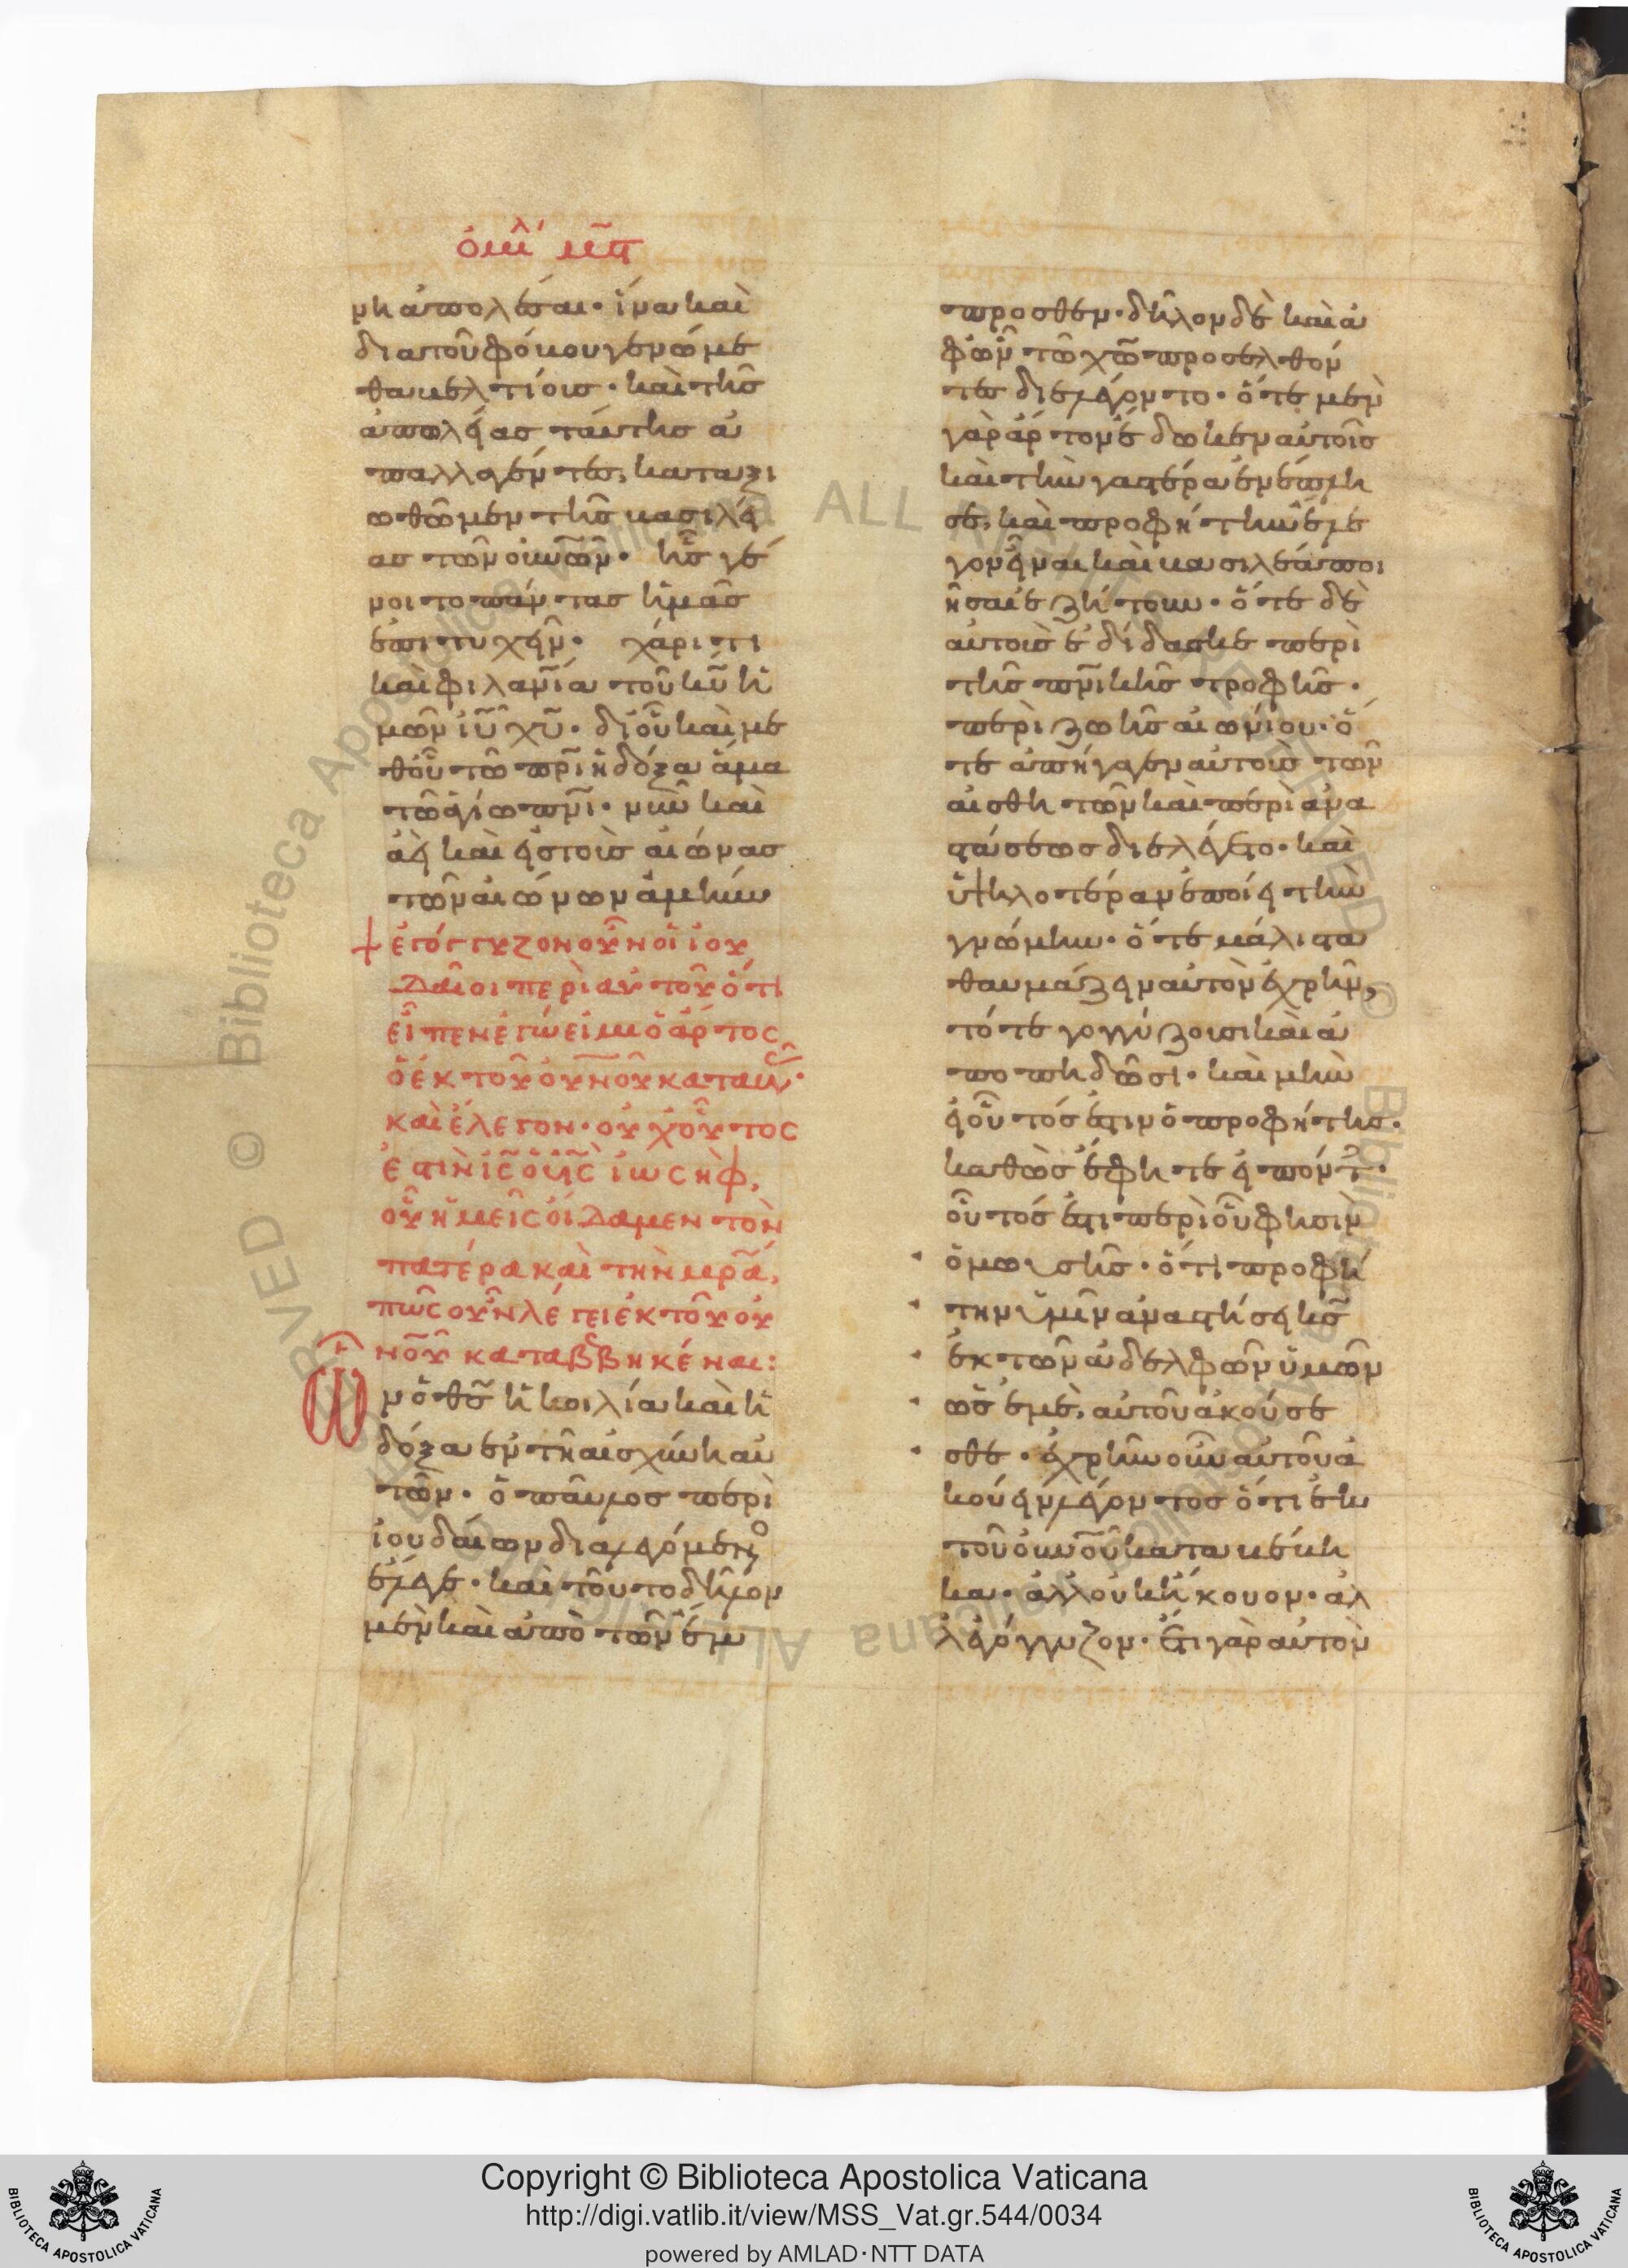 ὁμιλ´ μϛ
μὴ ἀπολέσαι· ἵνα καὶ
διὰ τοῦ φόβου γενώμε
θα βελτίους· καὶ τῆς
ἀπωλείας ταύτης ἀ
παλλαγέντες, καταξι
ωθῶμεν τῆς βασιλεί
ας τῶν οὐνῶν· ἧς γέ
νοιτο πάντας ἡμᾶς
ἐπιτυχεῖν· χάριτι
καὶ φιλανίᾳ τοῦ κῦ ἡ
μῶν ἰῦ χῦ· δι' οὗ καὶ με
θ' οὗ τῶ πρὶ ἡ δόξα ἅμα
τῶ ἁγίω πνι· νῦν καὶ
ἀεὶ καὶ εἰς τοὺς αἰῶνας
τῶν αἰώνων ἀμήν
ἐγόγγυζον οὖν οἱ ἰου
δαῖοι περὶ αὐτοῦ ὅτι
εἶπεν ἐγώ εἰμι ὁ ἄρτος
ὁ ἐκ τοῦ οὐνοῦ καταβάς·
καὶ ἔλεγον· οὐχ οὗτός
ἐστιν ἰς ὁ υἱς ἰωσήφ,
οὗ ἡμεῖς οἴδαμεν τὸν
πατέρα καὶ τὴν μρα,
πῶς οὖν λέγει ἐκ τοῦ οὐ
νοῦ καταβεβηκέναι:
Ὧν ὁ θς ἡ κοιλία καὶ ἡ
δόξα ἐν τῇ αἰσχύνη αὐ
τῶν· ὁ παῦλος περὶ
ἰουδαίων διαλεγόμενος
ἔλεγε· καὶ τοῦτο δῆλον
μὲν καὶ ἀπὸ τῶν ἔμ
προσθεν· δῆλον δὲ καὶ ἀ
φ' ὧν τῶ χω προσελθόν
τες διελέγοντο· ὅτε μὲν
γὰρ ἄρτον ἔδωκεν αὐτοῖς
καὶ τὴν γαστέρα ἐνέπλη
σε, καὶ προφήτην ἔλε
γον εἶναι καὶ βασιλέα ποι
ῆσαι ἐζήτουν· ὅτε δὲ
αὐτοὺς ἐδίδασκε περὶ
τῆς πνικῆς τροφῆς·
περὶ ζωῆς αἰωνίου· ὅ
τε ἀπήγαγεν αὐτοὺς τῶν
αἰσθητῶν καὶ περὶ ἀνα
στάσεως διελέγετο· καὶ
ὑψηλοτέραν ἐποίει τὴν
γνώμην· ὅτε μάλιστα
θαυμάζειν αὐτὸν ἐχρῆν,
τότε γογγύζουσι καὶ ἀ
ποπηδῶσι· καὶ μὴν
εἰ οὗτός ἐστιν ὁ προφήτης·
καθὼς ἔφητε εἰπόντες·
οὗτός ἐστι περὶ οὗ φησιν
ὁ μωυσῆς· ὅτι προφή
την ὑμῖν ἀναστήσει κς
ἐκ τῶν ἀδελφῶν ὑμῶν
ὡς ἐμὲ, αὐτοῦ ἀκούσε
σθε· ἐχρῆν οὖν αὐτοῦ ἀ
κούειν λέγοντος ὅτι ἐκ
τοῦ οὐνοῦ καταβέβη
κα· ἀλλ' οὐκ ἤκουον· ἀλ
λ' ἐγόγγυζον· ἔτι γὰρ αὐτὸν
Copyright © Biblioteca Apostolica Vaticana
http://digi.vatlib.it/view/MSS_Vat.gr.544/0034
powered by AMLAD·NTT DATA